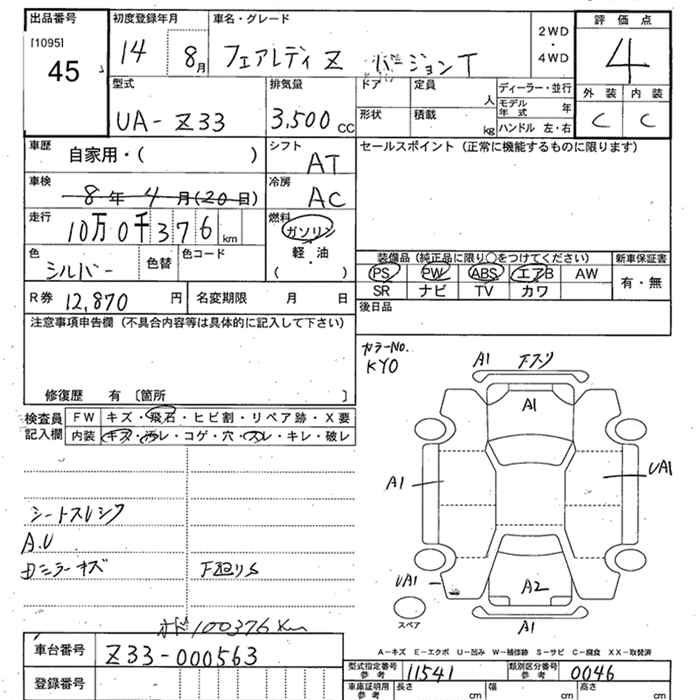 出品番号 初度登録年月 車名・グレード 2WD・4WD 評価点
[1095] 45 14 8月 フェアレディ Z バージョンT 4
型式 排気量 ドア 定員 人 ディーラー・並行 外装 内装
UA-Z33 3,500cc 形状 積載 kg モデル年式 年 ハンドル 左・右 C C
車歴 自家用・( ) シフト AT セールスポイント (正常に機能するものに限ります)
車検 8年4月(20日) 冷房 AC
走行 10万0千376km 燃料 ガソリン
軽・油
・
( )
色 シルバー 色替 色コード
装備品 (純正品に限り○をつけてください) 新車保証書
PS PW ABS エアB AW 有・無
SR ナビ TV カワ
R券 12,870円 名変期限 月 日 後日品
注意事項申告欄 (不具合内容等は具体的に記入して下さい)
カラーNo.
KY0
A1 下スリ
A1
修復歴 有 〔箇所 〕
検査員記入欄 FW キズ・飛石・ヒビ割・リペア跡・X要
内装 キズ・汚レ・コゲ・穴・スレ・キレ・破レ
A1 UA1
シートスレシワ
A.U
ミラーキズ 下廻りS
UA1 A2
スペア A1
オド100376Km
A-キズ E-エクボ U-凹み W-補修跡 S-サビ C-腐食 XX-取替済
車台番号 Z33-000563
型式指定番号 参考 11541 類別区分番号 参考 0046
登録番号 車庫証明用 参考 長さ cm 幅 cm 高さ cm